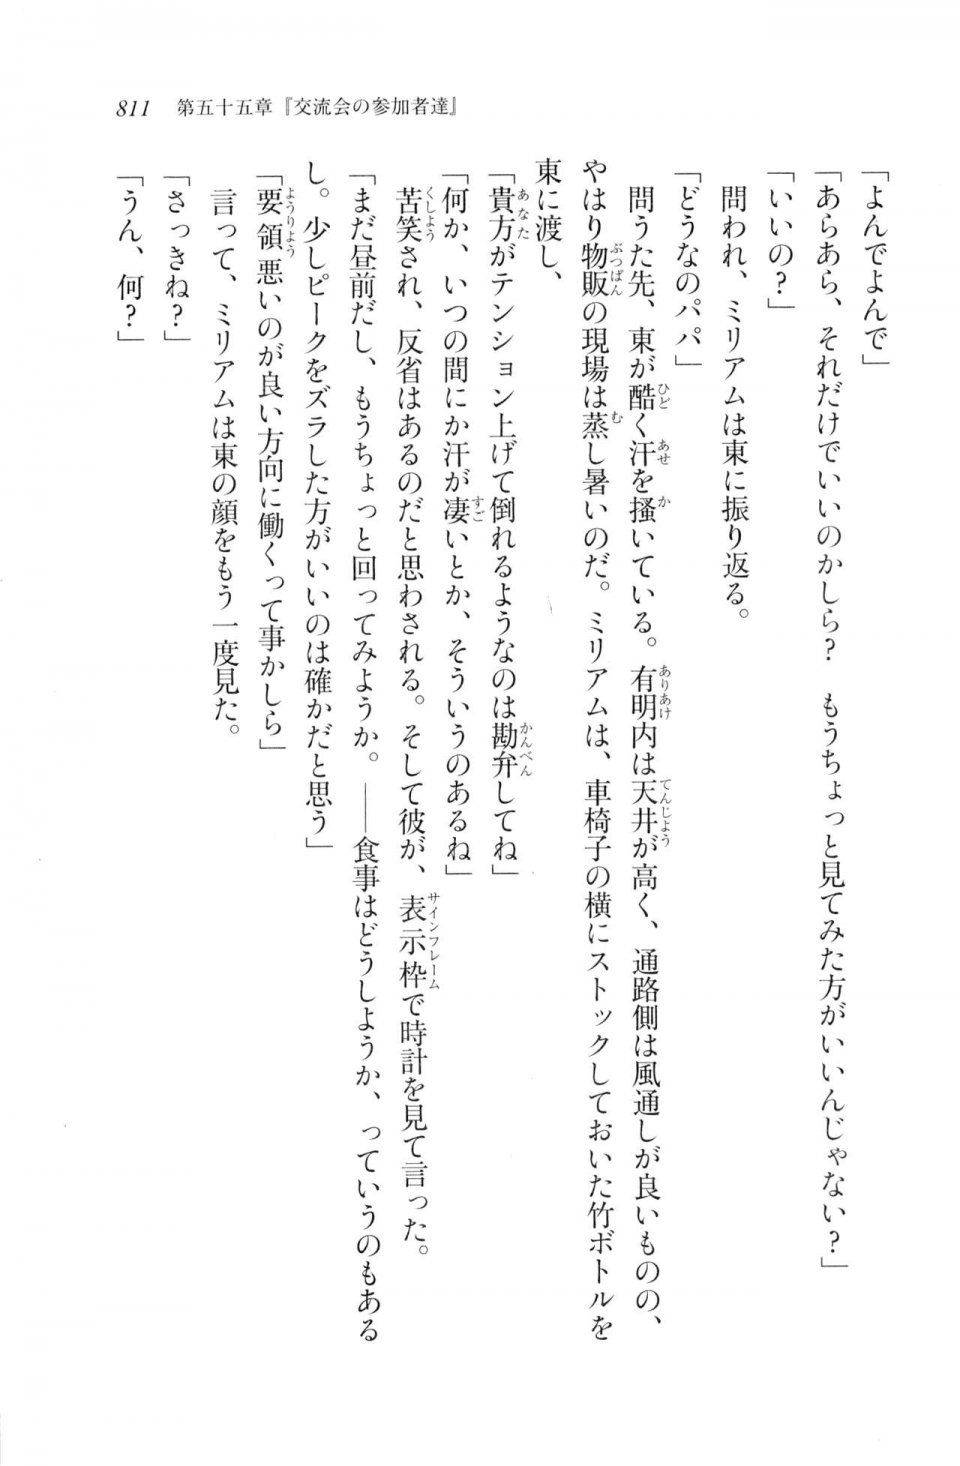 811　第五十五章『交流会の参加者達』
「よんでよんで」
「あらあら、それだけでいいのかしら？　もうちょっと見てみた方がいいんじゃない？」
「いいの？」
　問われ、ミリアムは東に振り返る。
「どうなのパパ」
　問うた先、東が酷く汗を掻いている。有明内は天井が高く、通路側は風通しが良いものの、
やはり物販の現場は蒸し暑いのだ。ミリアムは、車椅子の横にストックしておいた竹ボトルを
東に渡し、
「貴方がテンション上げて倒れるようなのは勘弁してね」
「何か、いつの間にか汗が凄いとか、そういうのあるね」
　苦笑され、反省はあるのだと思わされる。そして彼が、表示枠で時計を見て言った。
「まだ昼前だし、もうちょっと回ってみようか。――食事はどうしようか、っていうのもある
し。少しピークをズラした方がいいのは確かだと思う」
「要領悪いのが良い方向に働くって事かしら」
　言って、ミリアムは東の顔をもう一度見た。
「さっきね？」
「うん、何？」